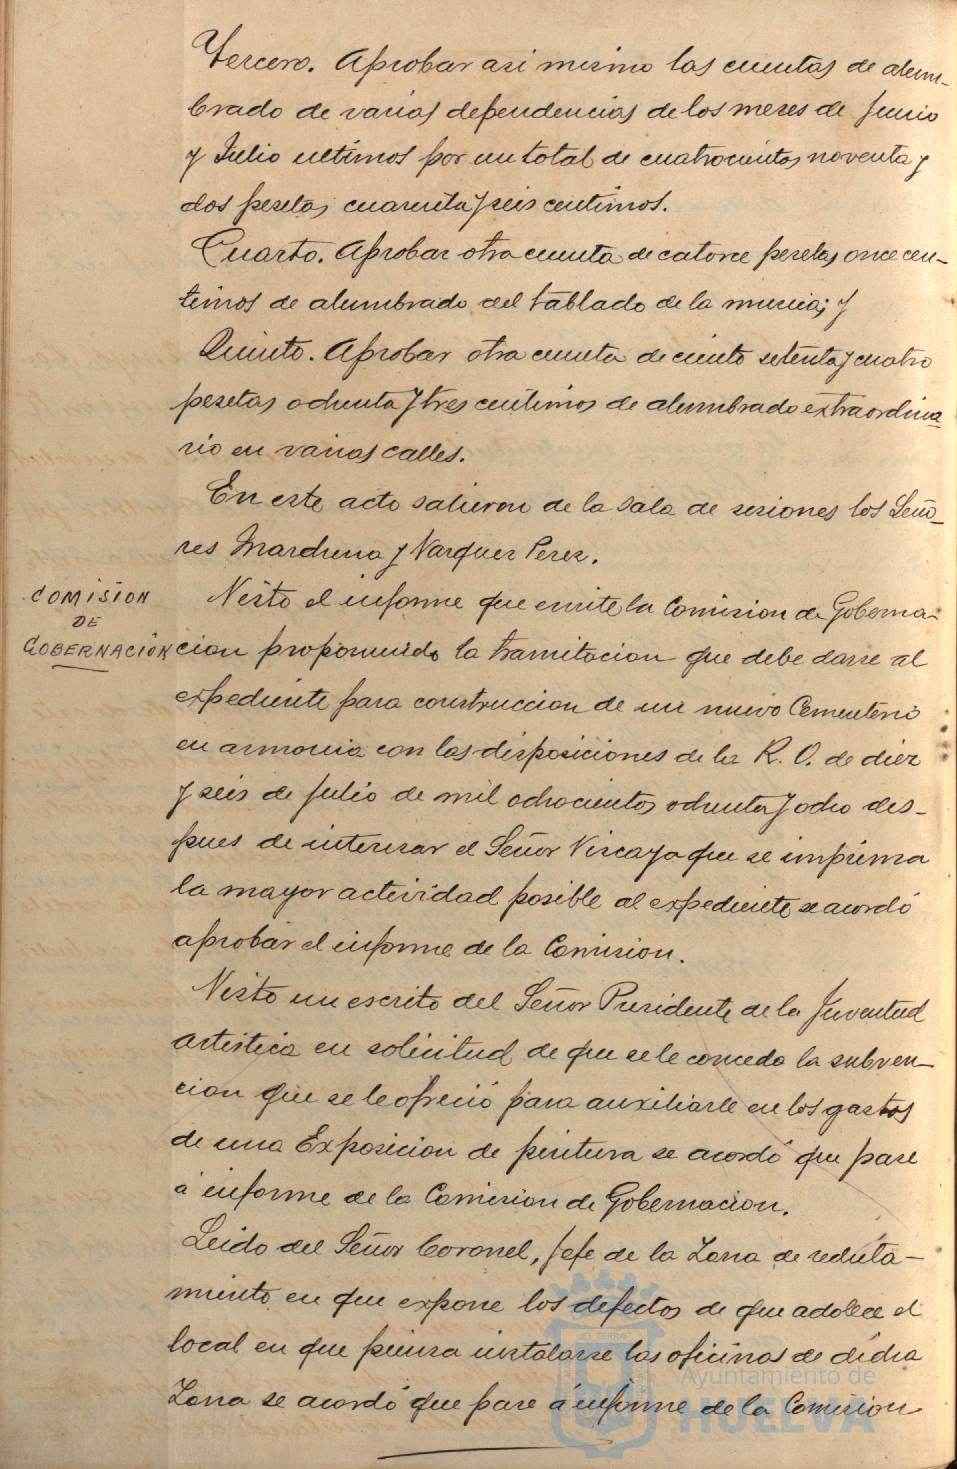 Tercero. Aprobar asi mismo las cuentas de alum-
brado de varias dependencias de los meses de Junio
y Julio ultimos por un total de cuatrocientas noventa y
dos pesetas cuarenta y seis centimos.
Cuarto. Aprobar otra cuenta de catorce pesetas once cen-
timos de alumbrado del tablado de la musica; y
Quinto. Aprobar otra cuenta de ciento setenta y cuatro
pesetas ochenta y tres centimos de alumbrado extraordina-
rio en varias calles.
En este acto salieron de la sala de sesiones los Seño-
res Marchena y Vazquez Perez.
COMISION
DE
GOBERNACION
Visto el informe que emite la Comision de Goberna-
cion proponiendo la tramitacion que debe darse al
expediente para construccion de un nuevo Cementerio
en armonia con las disposiciones de la R. O. de diez
y seis de Julio de mil ochocientos ochenta y ocho des-
pues de interesar el Señor Vizcaya que se imprima
la mayor actividad posible al expediente se acordó
aprobar el informe de la Comision.
Visto un escrito del Señor Presidente de la Juventud
Artistica en solicitud de que se le conceda la subven-
cion que se le ofreció para auxiliarle en los gastos
de una Exposicion de pintura se acordó que pase
á informe de la Comision de Gobernacion.
Leido del Señor Coronel, Jefe de la Zona de recluta-
miento en que expone los defectos de que adolece el
local en que piensa instalarse las oficinas de dicha
Zona se acordó que pase a informe de la Comision
Ayuntamiento de
HUELVA